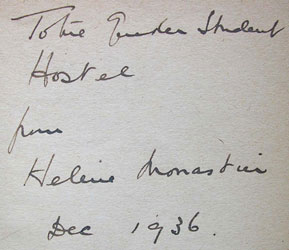 To the Quaker Student
Hostel
from
Helene Monastier
Dec 1936.